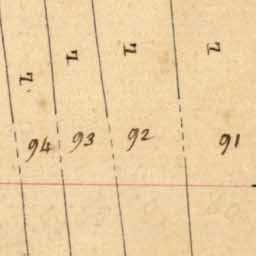 L L L L
94 93 92 91